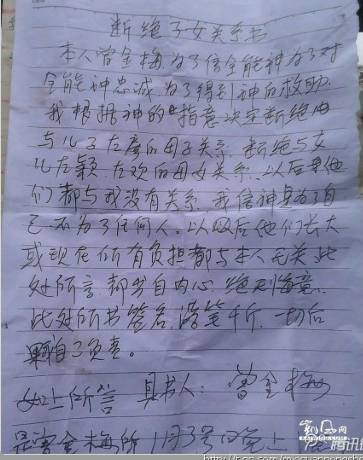 断绝子女关系书
本人曾金梅为了信全能神为了对
全能神忠诚为了得到神的救助
我根据神的"指意决定断绝
与儿子左彦的母子关系.断绝与女
儿左颖左欢的母女关系.以后
们都与我没有关系.我信神是为了自
己不为了任何人.以及后他们长大
或现在所有负担都与本人无关.此
处所言都出自内心绝无悔意.
此处所书签名落笔千斤.一切后
果自己负责.
以上所言 具书人: 曾金梅
是曾金梅 11月3号 晚上
腾讯